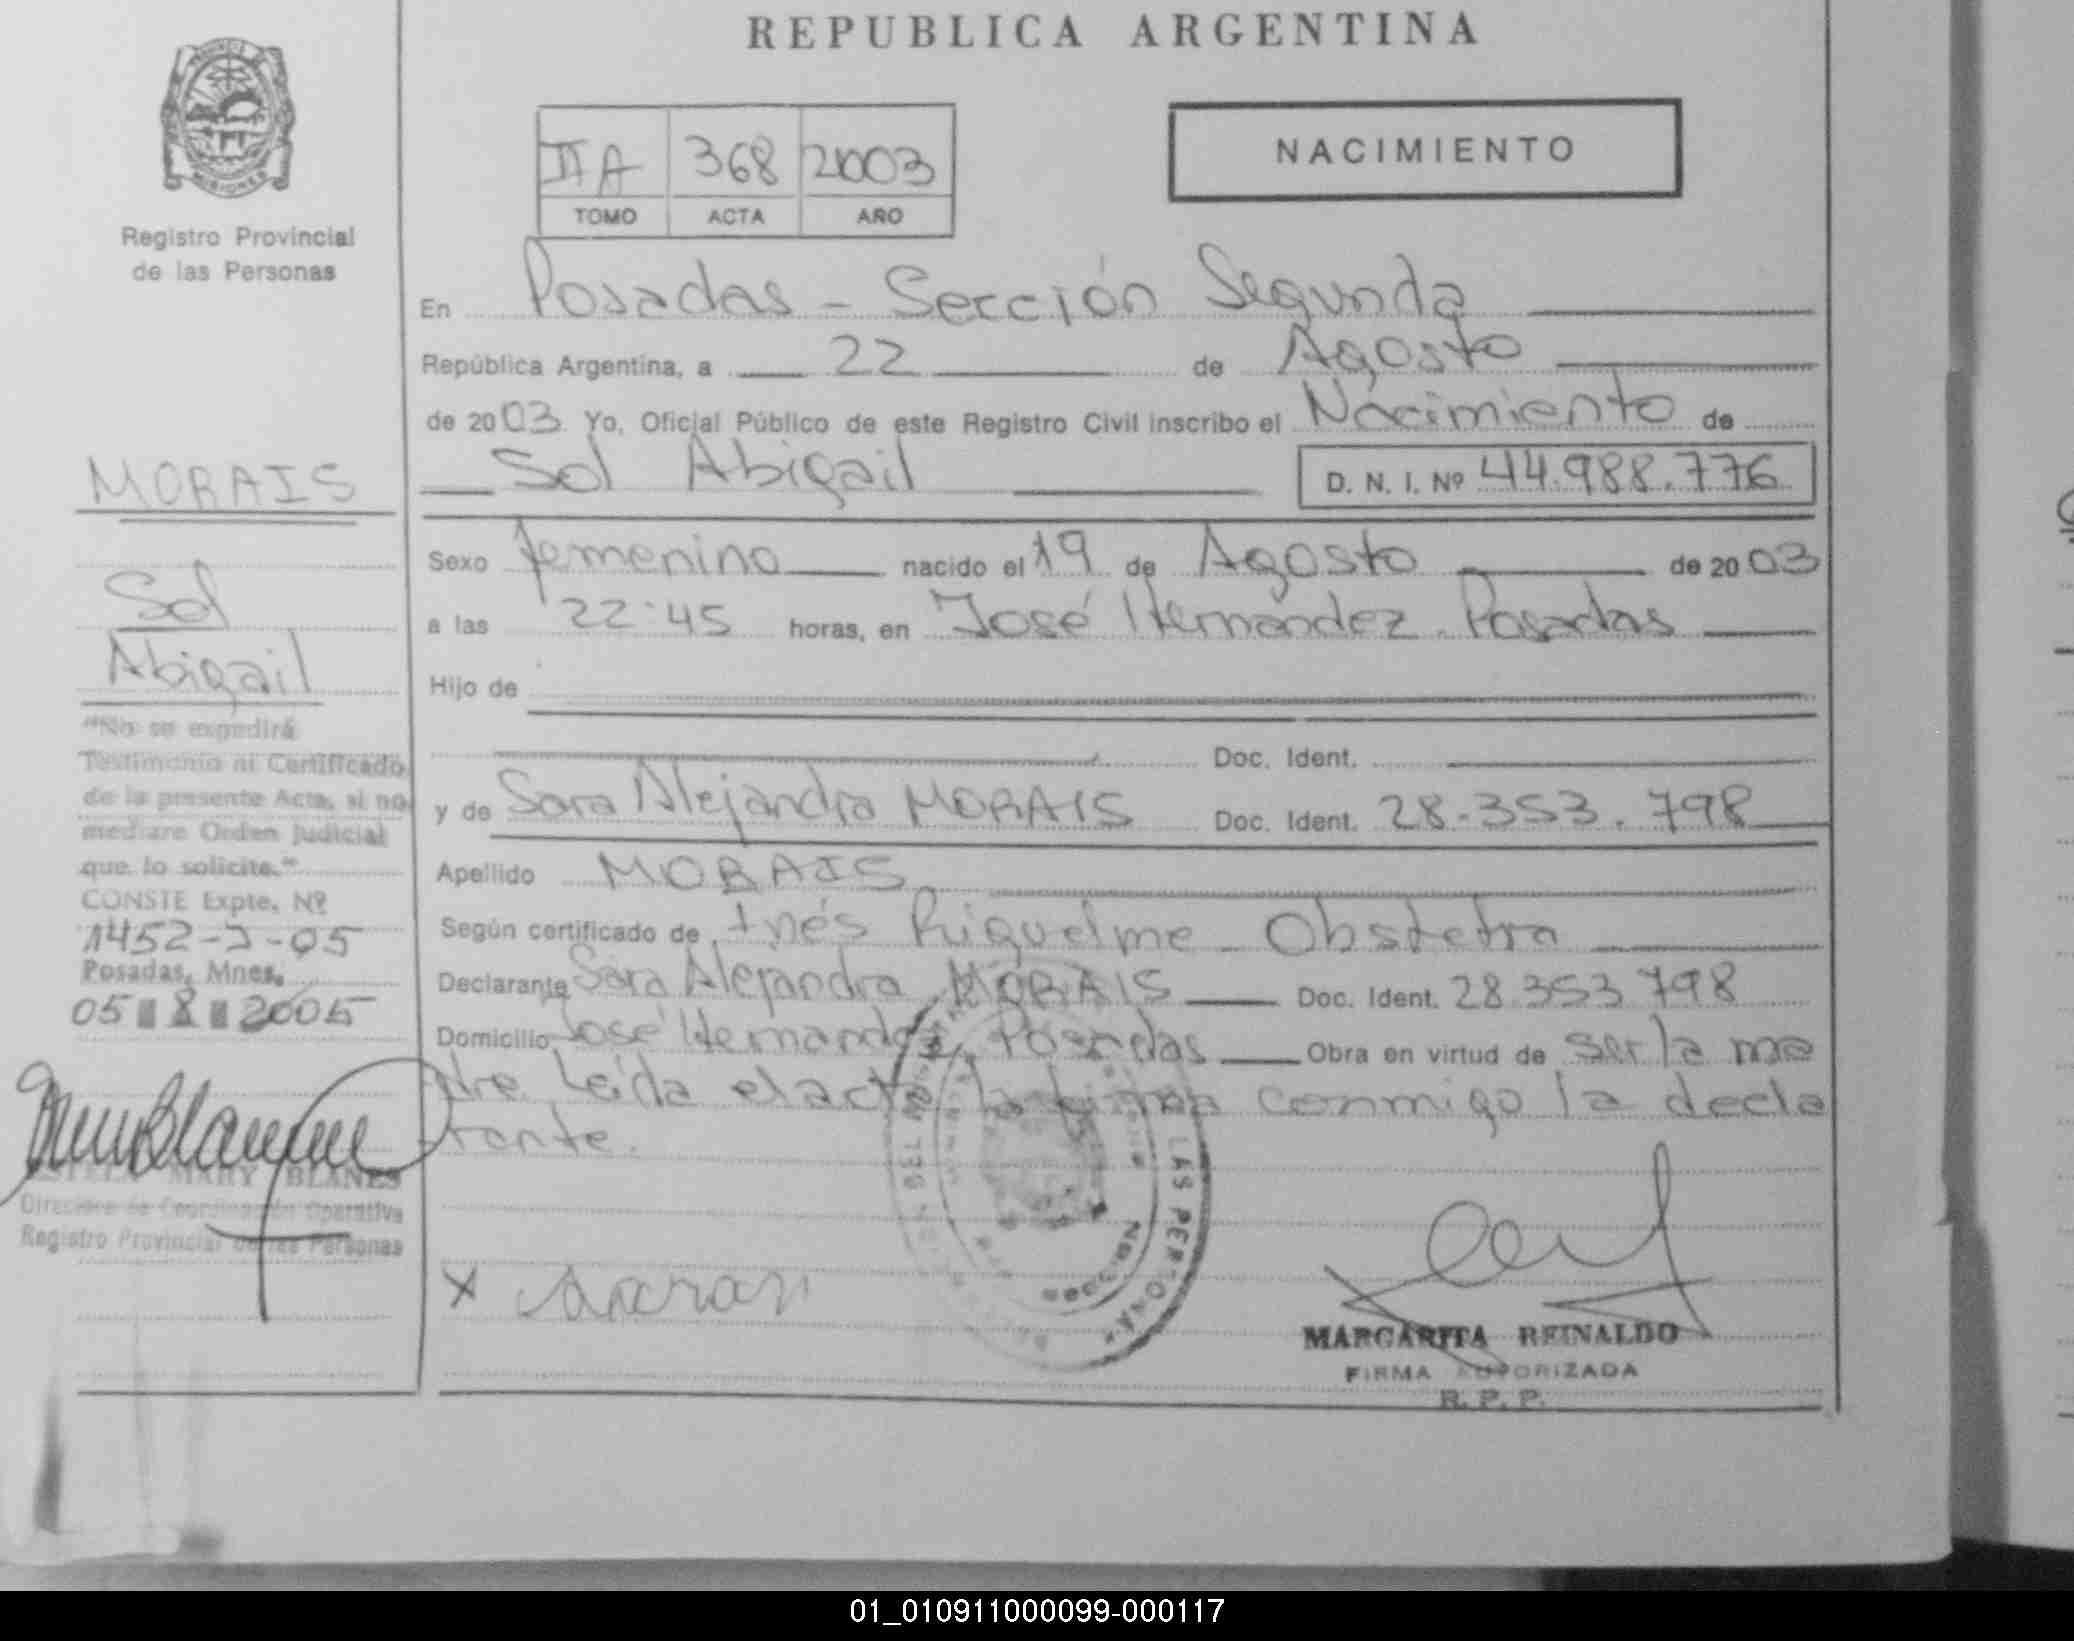 REPUBLICA ARGENTINA
MISIONES
Registro Provincial
de las Personas
IIA 368 2003
TOMO ACTA AÑO
NACIMIENTO
En Posadas - Sección Segunda
República Argentina, a 22 de Agosto
de 2003 Yo, Oficial Público de este Registro Civil inscribo el Nacimiento de
Sol Abigail D. N. I. Nº 44.988.776
Sexo femenino nacido el 19 de Agosto de 2003
a las 22:45 horas, en José Hernández. Posadas
Hijo de
Doc. Ident.
y de Sara Alejandra MORAIS Doc. Ident. 28.353.798
Apellido MORAIS
Según certificado de Inés Riquelme - Obstetra
Declarante Sara Alejandra MORAIS Doc. Ident. 28.353.798
Domicilio José Hernandez Posadas Obra en virtud de ser la ma
dre. Leída el acta la firma conmigo la decla
rante.
MORAIS
Sol
Abigail
"No se expedirá
Testimonio ni Certificado
de la presente Acta, si no
mediare Orden Judicial
que lo solicite."
CONSTE Expte. Nº
1452-J-05
Posadas, Mnes.
05 8 2005
ESTELA MARY BLANES
Directora de Coordinación Operativa
Registro Provincial de las Personas
X
LAS PERSONAS
MARGARITA REINALDO
FIRMA AUTORIZADA
R. P. P.
01_010911000099-000117